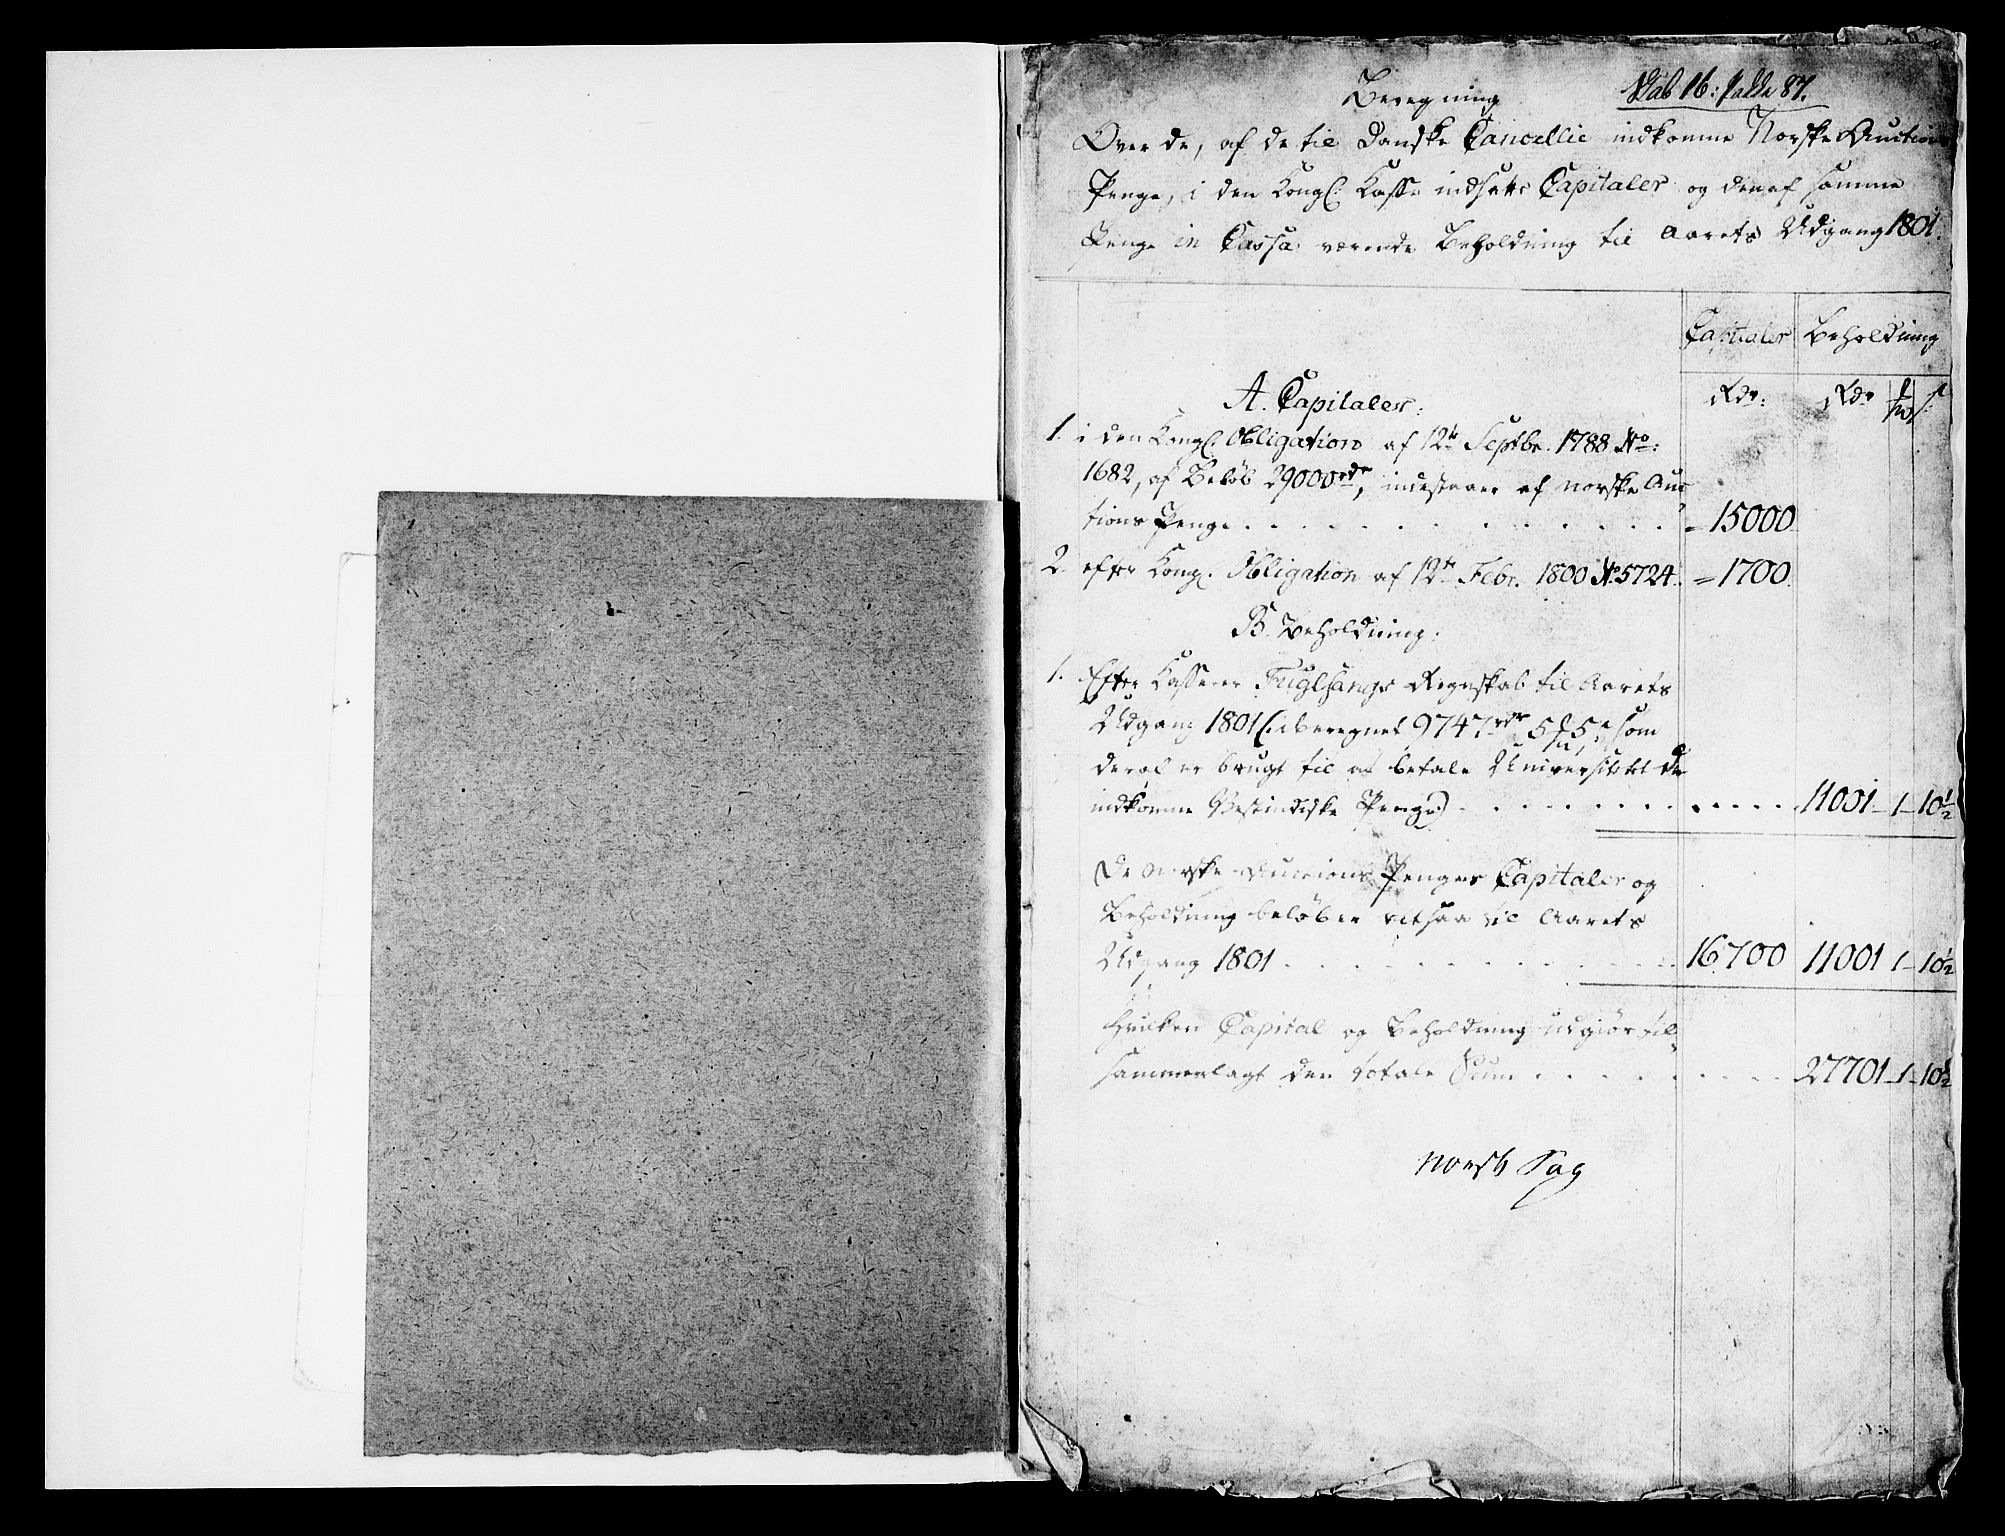 Beregning
Skab 16: Pakke 87.
Over de, af de til Danske Cancellie indkomne Norske Auctions
Penge, i den Kongl. Kasse indsatte Capitaler og den af samme
Penge in Cassa værende Beholdning til Aarets Udgang 1801.
Capitaler Beholdning
A. Capitaler: Rdr: Rdr
1. i den Kongl. Obligation af 12te Septbr. 1788 No:
1682, af Beløb 29000rdr, indestaaer af norske Auc
tions Penge . . . . . . . . . . . . - 15000
2. efter Kongl. Obligation af 12te Febr. 1800 No 5724. - 1700.
B. Beholdning:
1. Efter Kasserer Fuglsangs Regnskab til Aarets
Udgang 1801 (: uberegnet 9747rdr 5 5 som
deraf er brugt til at betale Universitetet de
indkomne Vestindiske Penge:) . . . . . . . . 11001 - 1 - 10½
De Norske Auctions Penges Capitaler og
Beholdning beløber altsaa til Aarets
Udgang 1801 . . . . . . . . . . 16700 11001 1 - 10½
Hvilken Capital og Beholdning udgiør til-
sammenlagt den totale Sum . . . . . . . . 27701 - 1 - 10½
Norsk Sag